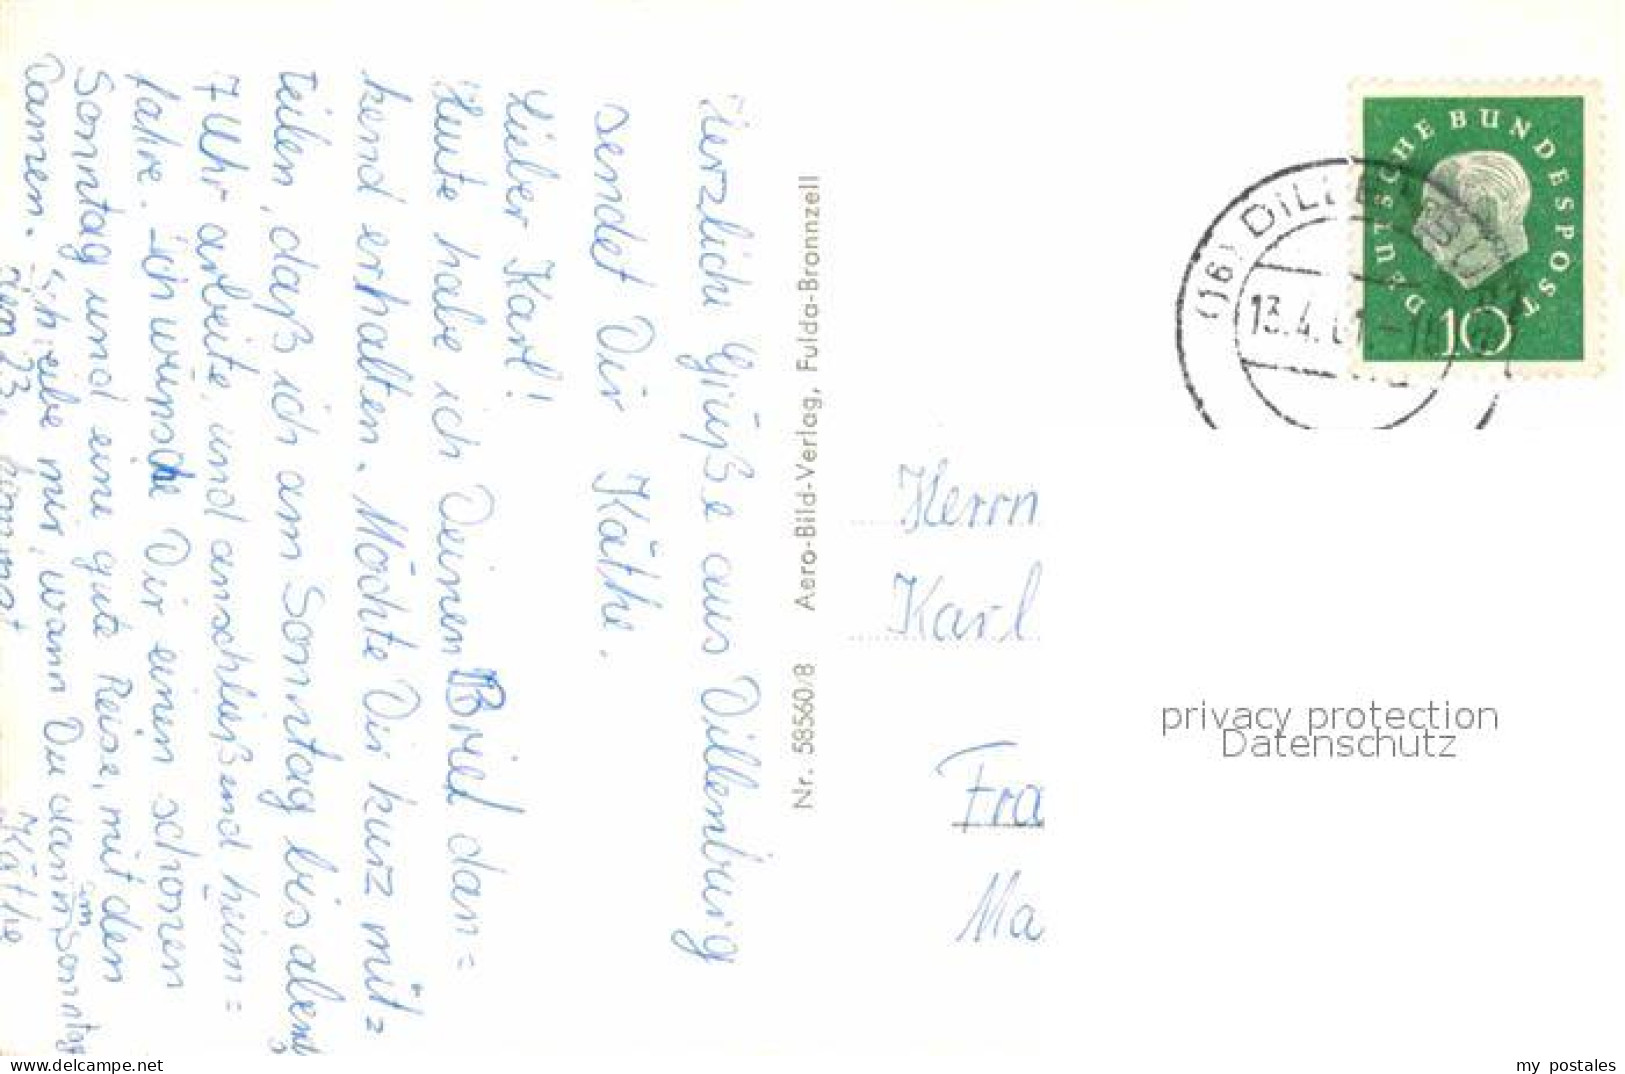 Herzliche Grüße aus Dillenburg
sendet Dir Käthe.
Lieber Karl!
Heute habe ich Deinen Brief dan=
kend erhalten. Möchte Dir kurz mit=
teilen, daß ich am Sonntag bis abend
7 Uhr arbeite, und anschließend heim=
fahre. Ich wünsche Dir einen schönen
Sonntag und eine gute Reise, mit den
Damen. mir, wann Du dann am Sonntag
den 23. kommst
Käthe
Nr. 58560/8 Aero-Bild-Verlag, Fulda-Bronnzell
DEUTSCHE BUNDESPOST
10
(16) DILLENBURG
13.4.61.-16
Herrn
Karl
Fra
Ma
privacy protection
Datenschutz
delcampe.net
my_postales